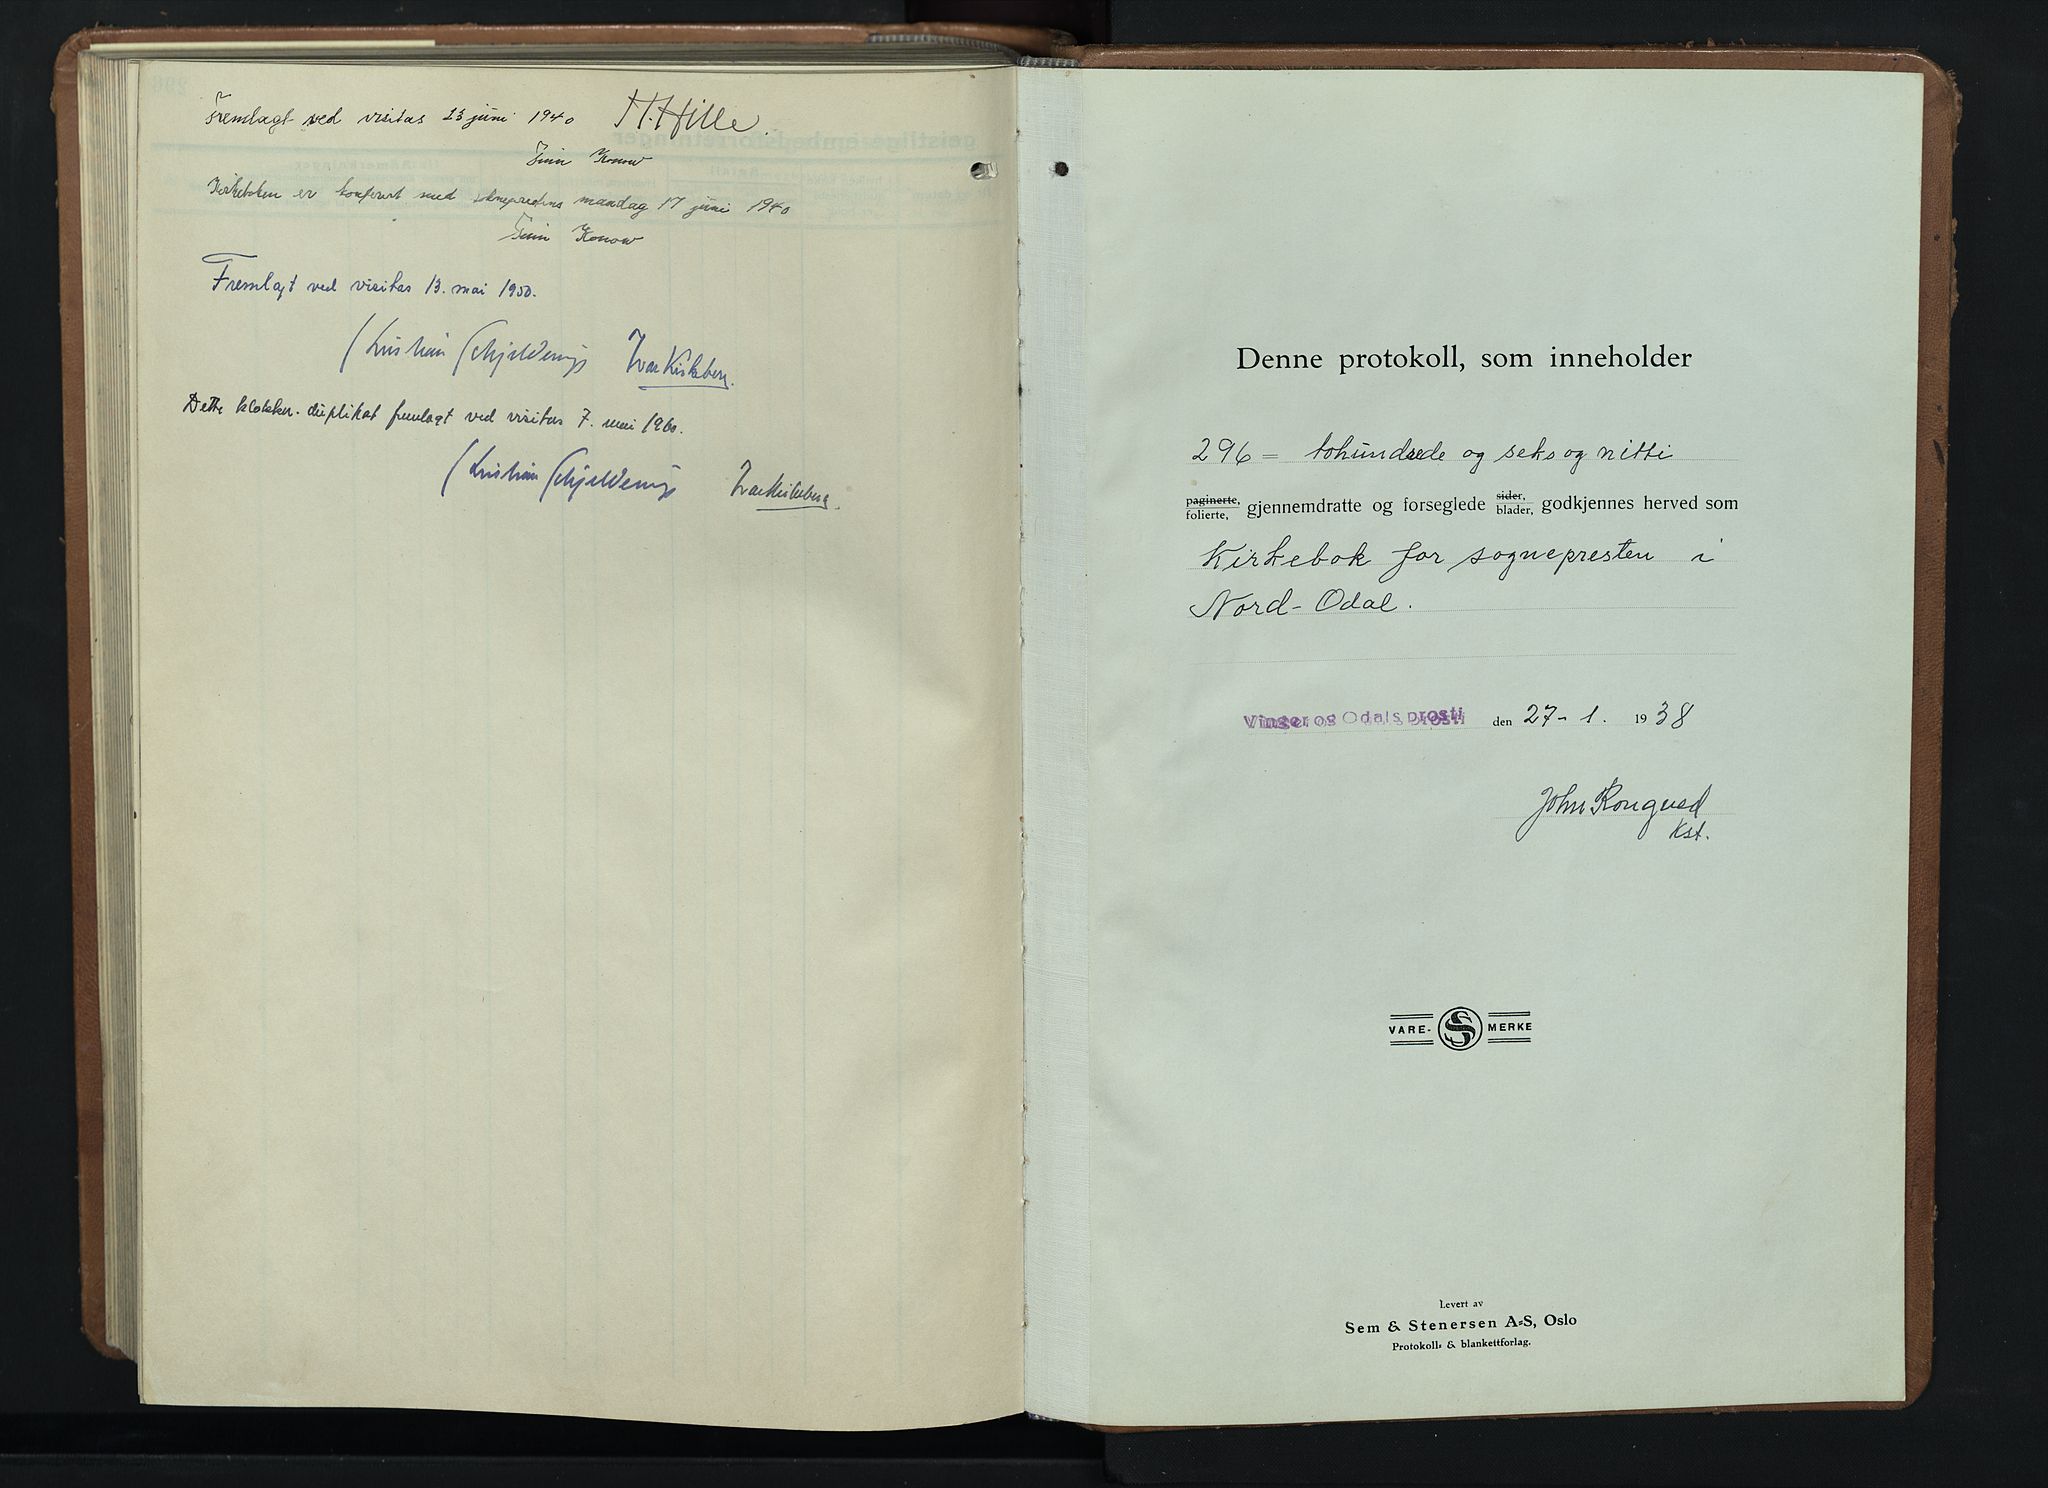 Fremlagt ved visitas 13 juni 1940 H. Hille.
Finn Konow
Kirkeboken er konferert med sokneprestens mandag 17 juni 1940
Finn Konow
Fremlagt ved visitas 13. mai 1950.
Kristian Schjelderup Ivar Kirkeberg.
Dette klokker-duplikat fremlagt ved visitas 7. mai 1960.
Kristian Schjelderup Ivar Kirkeberg.
Denne protokoll, som inneholder
296 = tohundrede og seks og nitti
paginerte, folierte, gjennemdratte og forseglede sider, blader, godkjennes herved som
Kirkebok for sognepresten i
Nord-Odal.
Vinger og Odals prosti den 27-1. 1938
John Rongved
Kst.
VARE- S MERKE
Levert av
Sem & Stenersen A-S, Oslo
Protokoll- & blankettforlag.